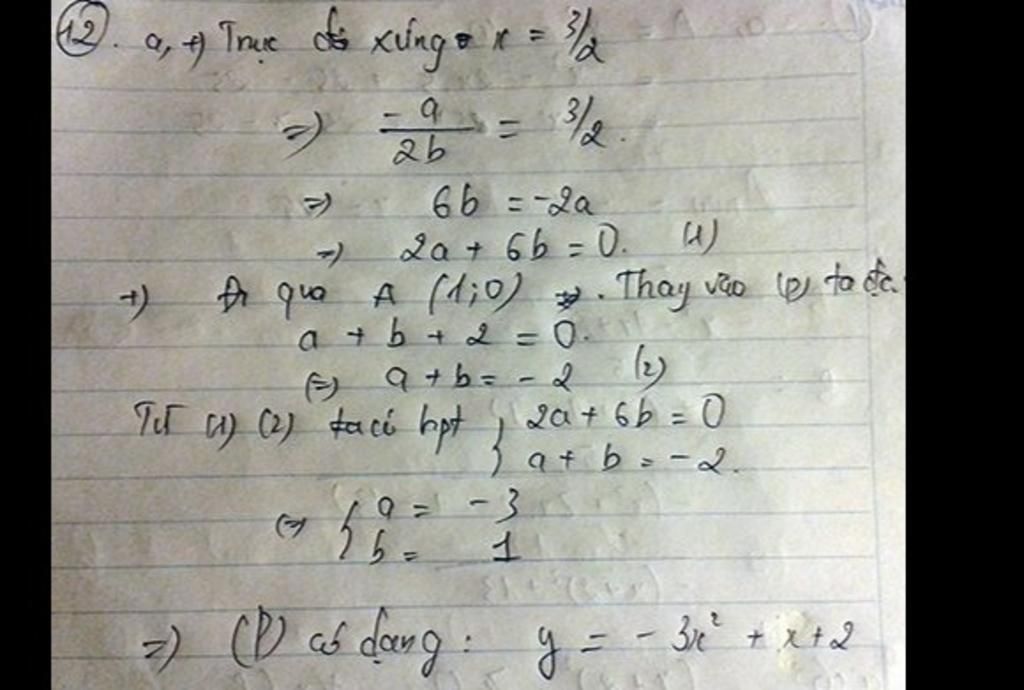 12. a, +) Trục đx xứng x = 3/2
=) -a/2b = 3/2.
=) 6b = -2a
=) 2a + 6b = 0. (1)
+) Đi qua A (1;0) . Thay vào (P) ta đc
a + b + 2 = 0.
(=) a + b = - 2 (2)
Từ (1) (2) ta có hpt { 2a + 6b = 0
a + b = - 2.
(=) { a = - 3
b = 1
=) (P) có dạng : y = - 3x² + x + 2